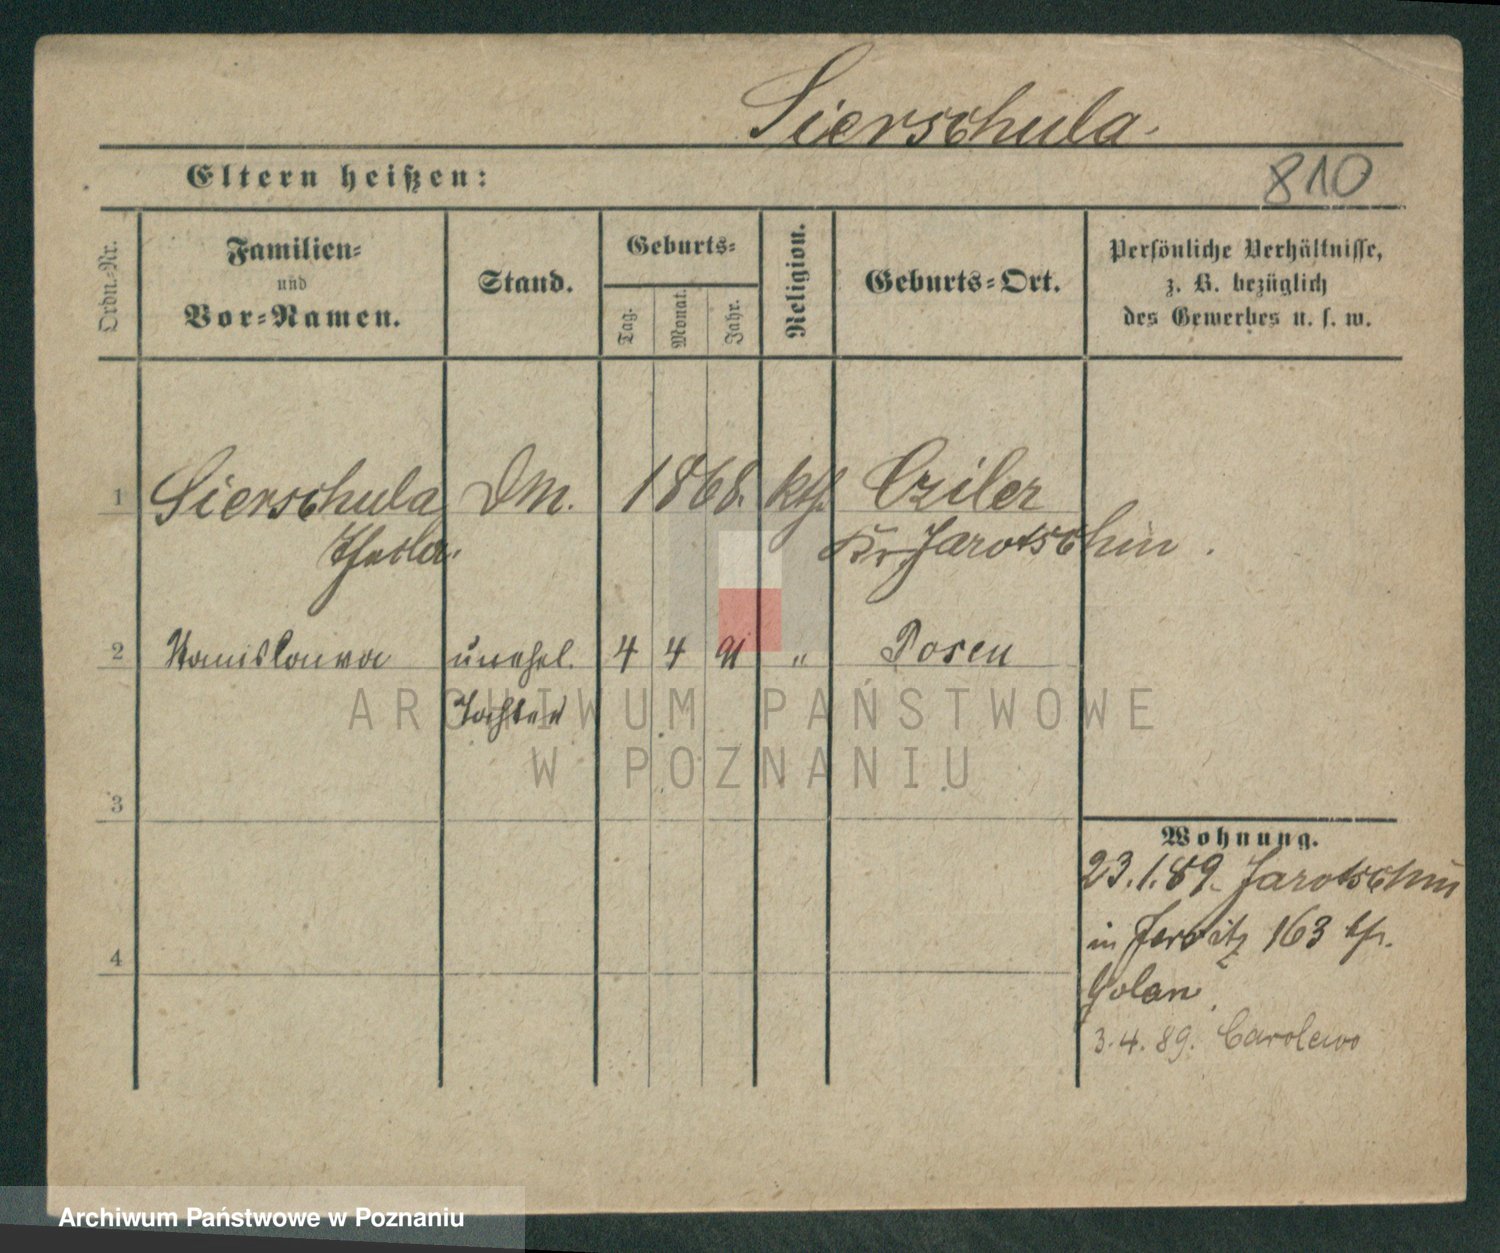 Sierschula.
Eltern heißen:
810
Ordn.-Nr.
Familien-
und
Vor-Namen.
Stand.
Geburts-
Tag.
Monat.
Jahr.
Religion.
Geburts-Ort.
Persönliche Verhältnisse,
z. B. bezüglich
des Gewerbes u. s. w.
1 Sierschula DM. 1868. kth. Cziler
Thecla. Kr. Jarotschin.
2 Stanislawa unehel. 4 4 91 " Posen
Tochter
ARCHIWUM PAŃSTWOWE
W POZNANIU
3
Wohnung.
23.1.89. Jarotschin
in Jersitz 163 bei
Golan.
4
3.4.89. Carolewo
Archiwum Państwowe w Poznaniu